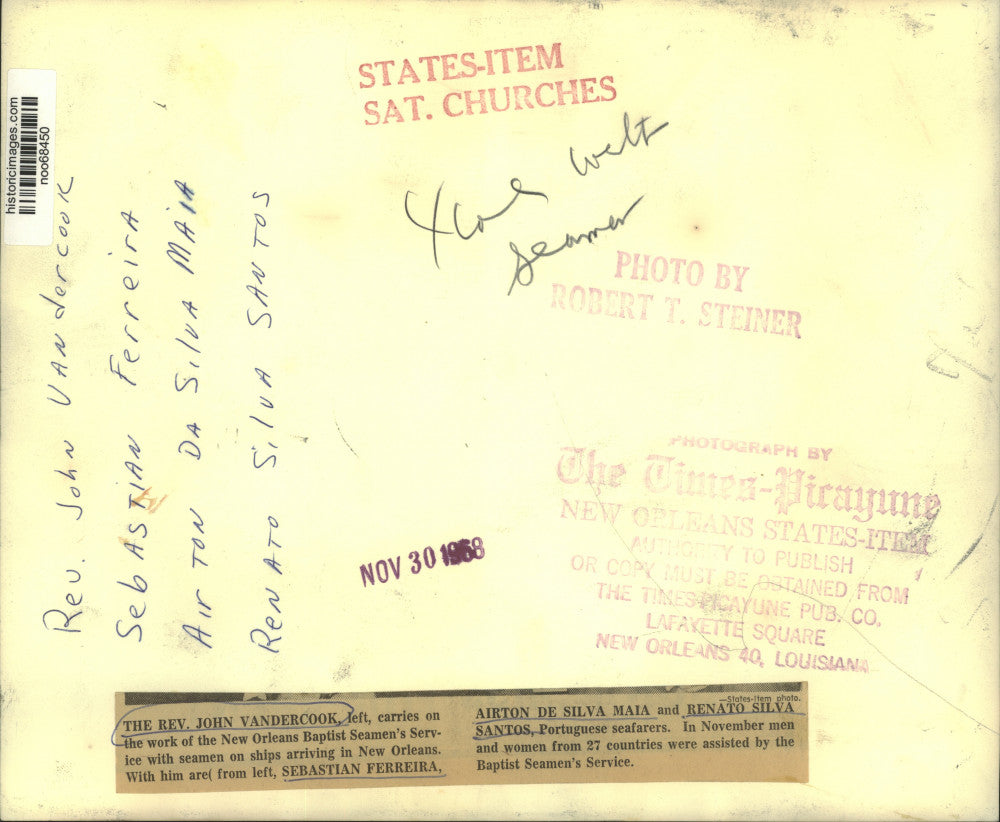 historicimages.com
noo68450
STATES-ITEM
SAT. CHURCHES
4 col welt
Seamen
PHOTO BY
ROBERT T. STEINER
Rev. John VANdercook
SebASTIAN Ferreira
Air TON DA SilvA MAiA
RENATO SilvA SANTOS
NOV 30 1968
PHOTOGRAPH BY
The Times-Picayune
NEW ORLEANS STATES-ITEM
AUTHORITY TO PUBLISH
OR COPY MUST BE OBTAINED FROM
THE TIMES-PICAYUNE PUB. CO.
LAFAYETTE SQUARE
NEW ORLEANS 40, LOUISIANA
—States-Item photo.
THE REV. JOHN VANDERCOOK, left, carries on
the work of the New Orleans Baptist Seamen's Serv-
ice with seamen on ships arriving in New Orleans.
With him are( from left, SEBASTIAN FERREIRA,
AIRTON DE SILVA MAIA and RENATO SILVA
SANTOS, Portuguese seafarers. In November men
and women from 27 countries were assisted by the
Baptist Seamen's Service.